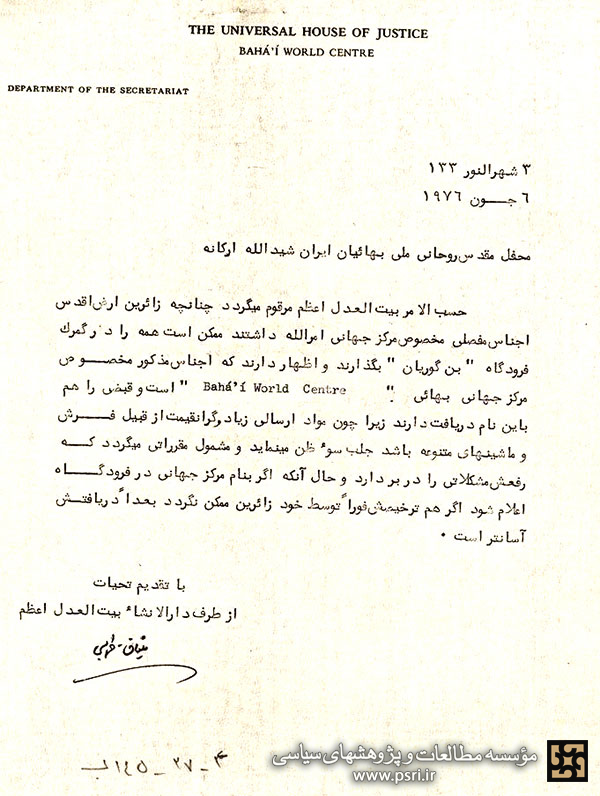 THE UNIVERSAL HOUSE OF JUSTICE
BAHÁ'Í WORLD CENTRE
DEPARTMENT OF THE SECRETARIAT
۳ شهرالنور ۱۳۳
٦ جـــون ۱۹۷٦
محفل مقدس روحانی ملی بهائیان ایران شیدالله ارکانه
حسب الامر بیت العدل اعظم مرقوم میگردد چنانچه زائرین ارض اقدس
اجناس مفصلی مخصوص مرکز جهانی امرالله داشتند ممکن است همه را در گمرك
فرودگاه " بن گوریان " بگذارند و اظهار دارند که اجناس مذکور مخصـــوص
مرکز جهانی بهائی " Bahá'í World Centre " است و قبضی را هم
باین نام دریافت دارند زیرا چون مواد ارسالی زیاد و گرانقیمت از قبیل فـــرش
و ماشینهای متنوعه باشد جلب سوء ظن مینماید و مشمول مقرراتی میگردد کـــه
رفعش مشکلاتی را در بر دارد و حال آنکه اگر بنام مرکز جهانی در فرودگـــاه
اعلام شود اگر هم ترخیصش فوراً توسط خود زائرین ممکن نگردد بعداً دریافتـــش
آسانتر است ۰
با تقدیم تحیات
از طرف دارالانشاء بیت العدل اعظم
٤ - ۲۷ - ۱٤٥ ب
مؤسسه مطالعات و پژوهشهای سیاسی
www.psri.ir